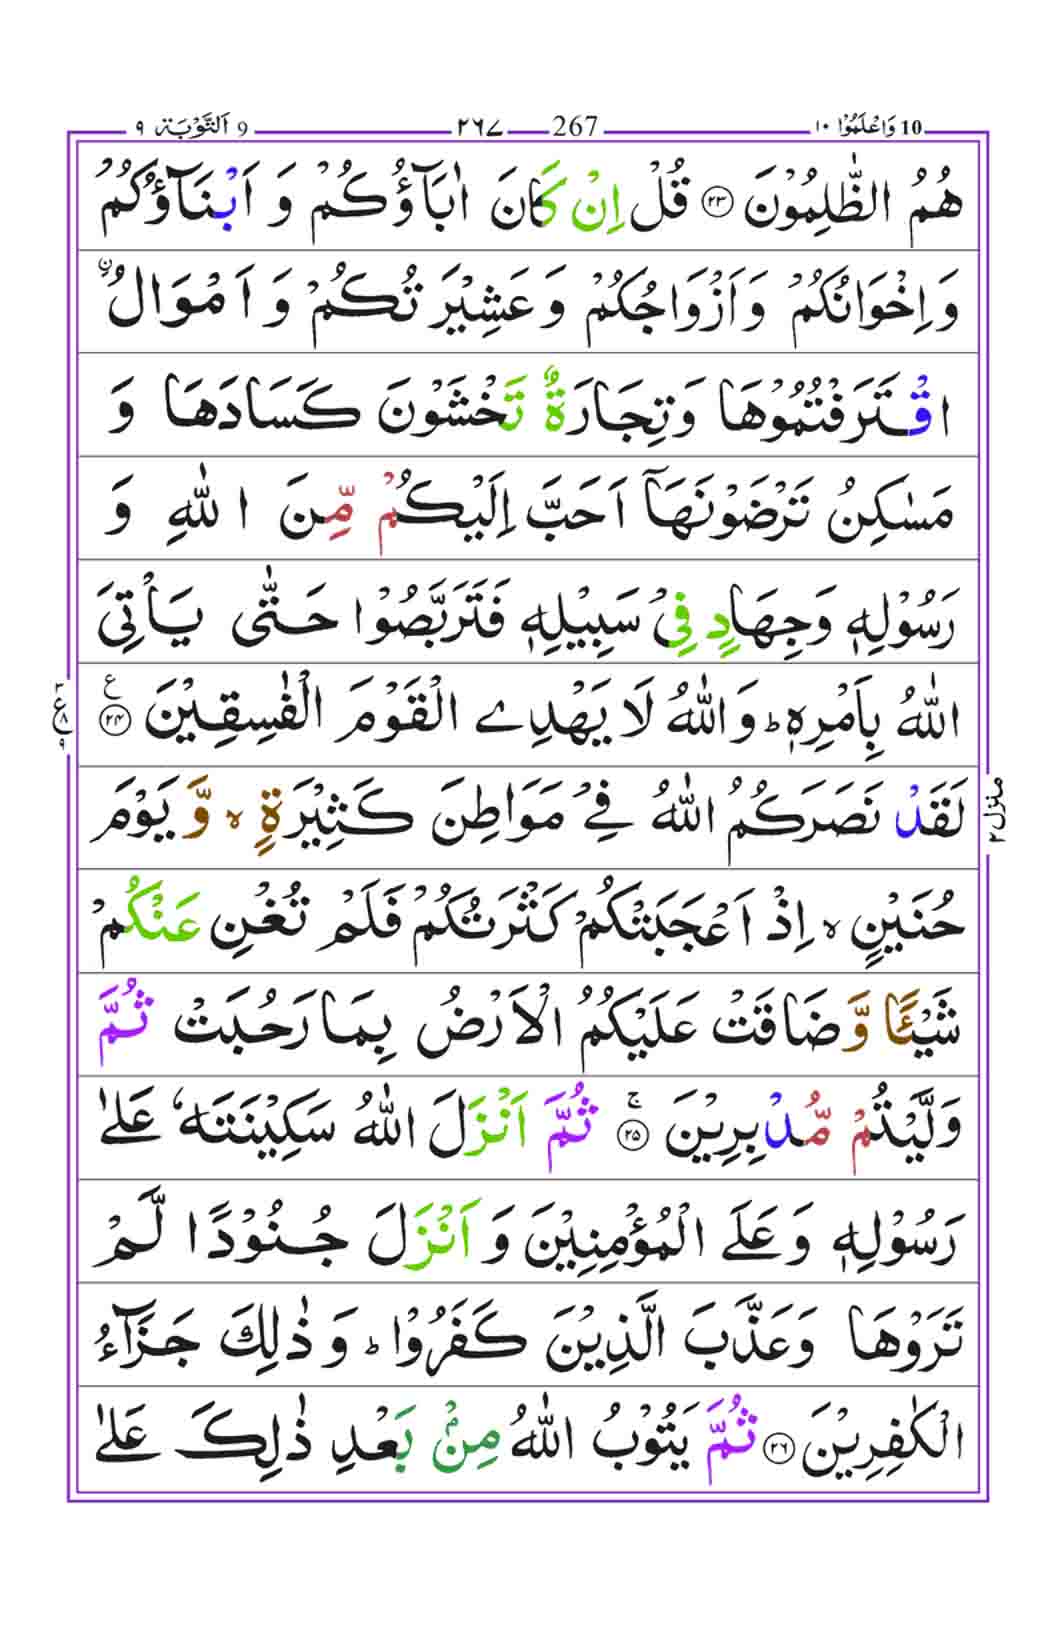 10 وَاعْلَمُوْۤا ١٠ 267 ٢٦٧ 9 اَلتَّوْبَة ٩
هُمُ الظّٰلِمُوْنَ ٢٣ قُلْ اِنْ كَانَ اٰبَآؤُكُمْ وَ اَبْنَآؤُكُمْ
وَ اِخْوَانُكُمْ وَ اَزْوَاجُكُمْ وَ عَشِيْرَتُكُمْ وَ اَمْوَالُ ۨ
اقْتَرَفْتُمُوْهَا وَ تِجَارَةٌ تَخْشَوْنَ كَسَادَهَا وَ
مَسٰكِنُ تَرْضَوْنَهَاۤ اَحَبَّ اِلَيْكُمْ مِّنَ اللّٰهِ وَ
رَسُوْلِهٖ وَ جِهَادٍ فِيْ سَبِيْلِهٖ فَتَرَبَّصُوْا حَتّٰى يَاْتِيَ
اللّٰهُ بِاَمْرِهٖ ؕ وَ اللّٰهُ لَا يَهْدِي الْقَوْمَ الْفٰسِقِيْنَ ٢٤ ع
٣ ع ٨ ٩
لَقَدْ نَصَرَكُمُ اللّٰهُ فِيْ مَوَاطِنَ كَثِيْرَةٍ ۙ وَّ يَوْمَ
منزل ٢
حُنَيْنٍ ۙ اِذْ اَعْجَبَتْكُمْ كَثْرَتُكُمْ فَلَمْ تُغْنِ عَنْكُمْ
شَيْـًٔا وَّ ضَاقَتْ عَلَيْكُمُ الْاَرْضُ بِمَا رَحُبَتْ ثُمَّ
وَلَّيْتُمْ مُّدْبِرِيْنَ ٢٥ ۚ ثُمَّ اَنْزَلَ اللّٰهُ سَكِيْنَتَهٗ عَلٰى
رَسُوْلِهٖ وَ عَلَى الْمُؤْمِنِيْنَ وَ اَنْزَلَ جُنُوْدًا لَّمْ
تَرَوْهَا وَ عَذَّبَ الَّذِيْنَ كَفَرُوْا ؕ وَ ذٰلِكَ جَزَآءُ
الْكٰفِرِيْنَ ٢٦ ثُمَّ يَتُوْبُ اللّٰهُ مِنْۢ بَعْدِ ذٰلِكَ عَلٰى